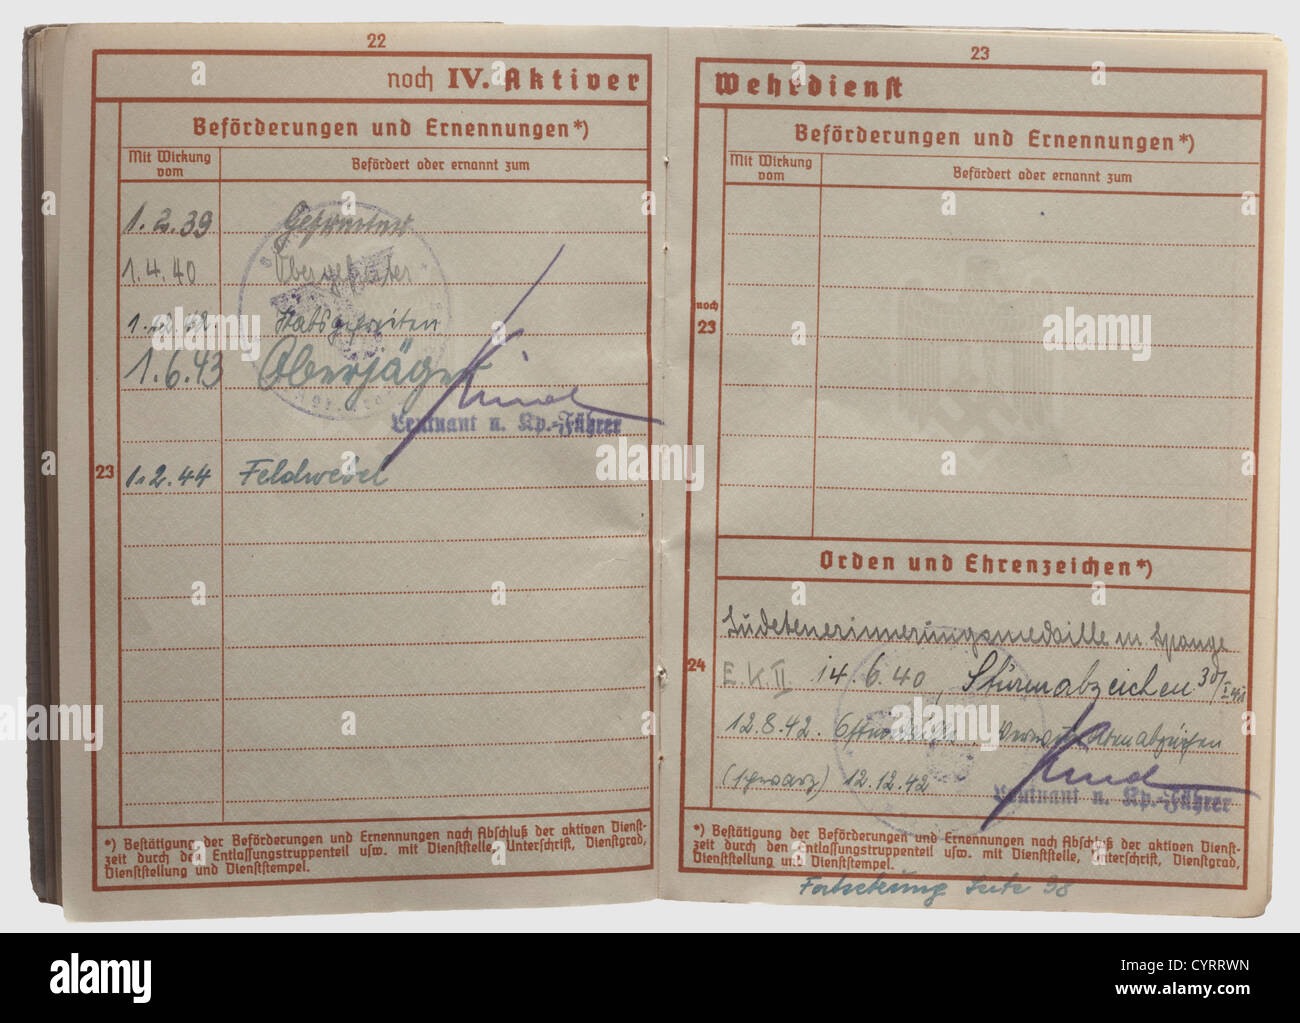 22
noch IV. Aktiver
Beförderungen und Ernennungen*)
Mit Wirkung vom
Befördert oder ernannt zum
1.2.39 Gefreiter
1.4.40 Obergefreiter
1.2.42. Stabsgefreiten
1.6.43 Oberjäger
Leutnant u. Kp.-Führer
23 1.2.44 Feldwebel
*) Bestätigung der Beförderungen und Ernennungen nach Abschluß der aktiven Dienst-
zeit durch den Entlassungstruppenteil usw. mit Dienststelle, Unterschrift, Dienstgrad,
Dienststellung und Dienststempel.
23
Wehrdienst
Beförderungen und Ernennungen*)
Mit Wirkung vom
Befördert oder ernannt zum
noch
23
Orden und Ehrenzeichen*)
Sudetenerinnerungsmedaille m. Spange
24 E.K.II 14.6.40, Sturmabzeichen
12.8.42. Ostmedaille, Verwundetenabzeichen
(schwarz) 12.12.42
Leutnant u. Kp.-Führer
*) Bestätigung der Beförderungen und Ernennungen nach Abschluß der aktiven Dienst-
zeit durch den Entlassungstruppenteil usw. mit Dienststelle, Unterschrift, Dienstgrad,
Dienststellung und Dienststempel.
Fortsetzung Seite 38
a alamy
alamy
Image ID: CYRRWN
www.alamy.com